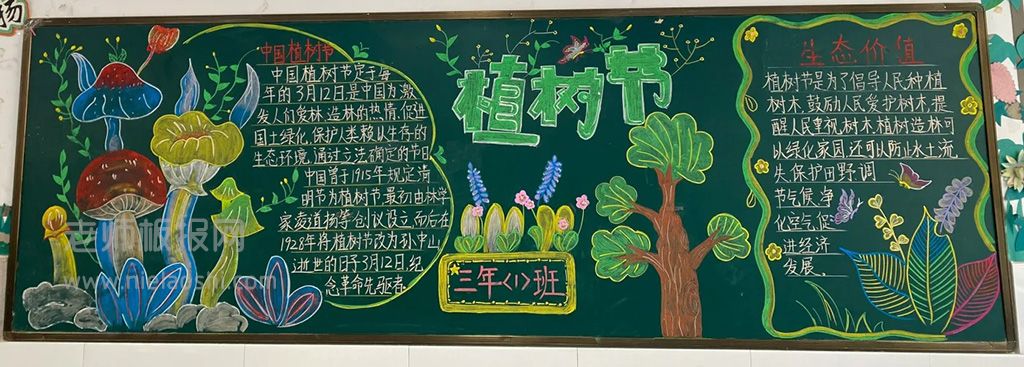 扬
中国植树节
中国植树节定于每
年的3月12日是中国为激
发人们爱林、造林的热情,促进
国土绿化,保护人类赖以生存的
生态环境,通过立法确定的节日
中国曾于1915年规定清
明节为植树节,最初由林学
家凌道扬等创议设立,而后在
1928年将植树节改为孙中山
逝世的日子3月12日,纪
念革命先驱者
植树节
三年<1>班
生态价值
植树节是为了倡导人民种植
树木,鼓励人民爱护树木,提
醒人民重视树木,植树造林可
以绿化家园,还可以防止水土流
失,保护田野,调
节气候,净
化空气,促
进经济
发展。
老师板报网
www.nielaoshi.com